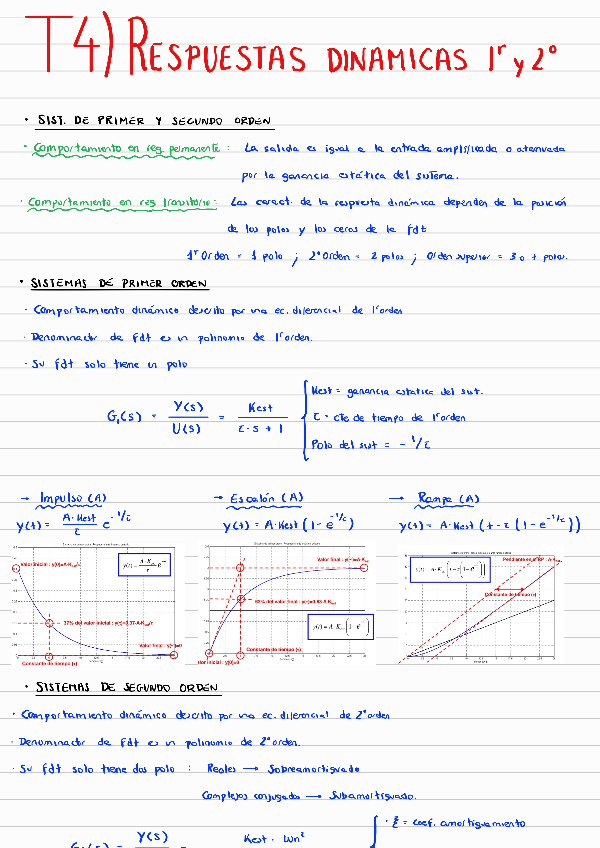 T4) RESPUESTAS DINAMICAS 1ʳ y 2º
· SIST. DE PRIMER Y SEGUNDO ORDEN
· Comportamiento en reg permanente: La salida es igual a la entrada amplificada o atenuada
por la ganancia estática del sistema.
· Comportamiento en reg transitorio: Las caract. de la respuesta dinámica dependen de la posición
de los polos y los ceros de la fdt
1ʳ Orden = 1 polo ; 2º Orden = 2 polos ; Orden superior = 3 o + polos.
· SISTEMAS DE PRIMER ORDEN
· Comportamiento dinámico descrito por una ec. diferencial de 1ʳ orden
· Denominador de fdt es un polinomio de 1ʳ orden.
· Su fdt solo tiene un polo
G₁(s) = Y(s) / U(s) = Kest / τ·s + 1
Kest = ganancia estatica del sist.
τ = cte de tiempo de 1ʳ orden
Polo del sist = - 1/τ
→ Impulso (A) → Escalón (A) → Rampa (A)
y(t) = A·Kest / τ e^-t/τ y(t) = A·Kest (1 - e^-t/τ) y(t) = A·Kest (t - τ (1 - e^-t/τ))
Valor inicial : y(0)=A·K
37% del valor final : y(τ)=0.37·A·K
Valor final : y(∞)=0
Constante de tiempo (s)
Valor final : y(∞)=A·K
63% del valor final : y(τ)=0.63·A·K
Constante de tiempo (s)
Valor inicial : y(0)=0
Pendiente en el RP : A·K
Constante de tiempo (s)
· SISTEMAS DE SEGUNDO ORDEN
· Comportamiento dinámico descrito por una ec. diferencial de 2º orden
· Denominador de fdt es un polinomio de 2º orden.
· Su fdt solo tiene dos polo : Reales → Sobreamortiguado
Complejos conjugados → Subamortiguado.
Y(s) Kest · Wn²
· ξ = coef. amortiguamiento